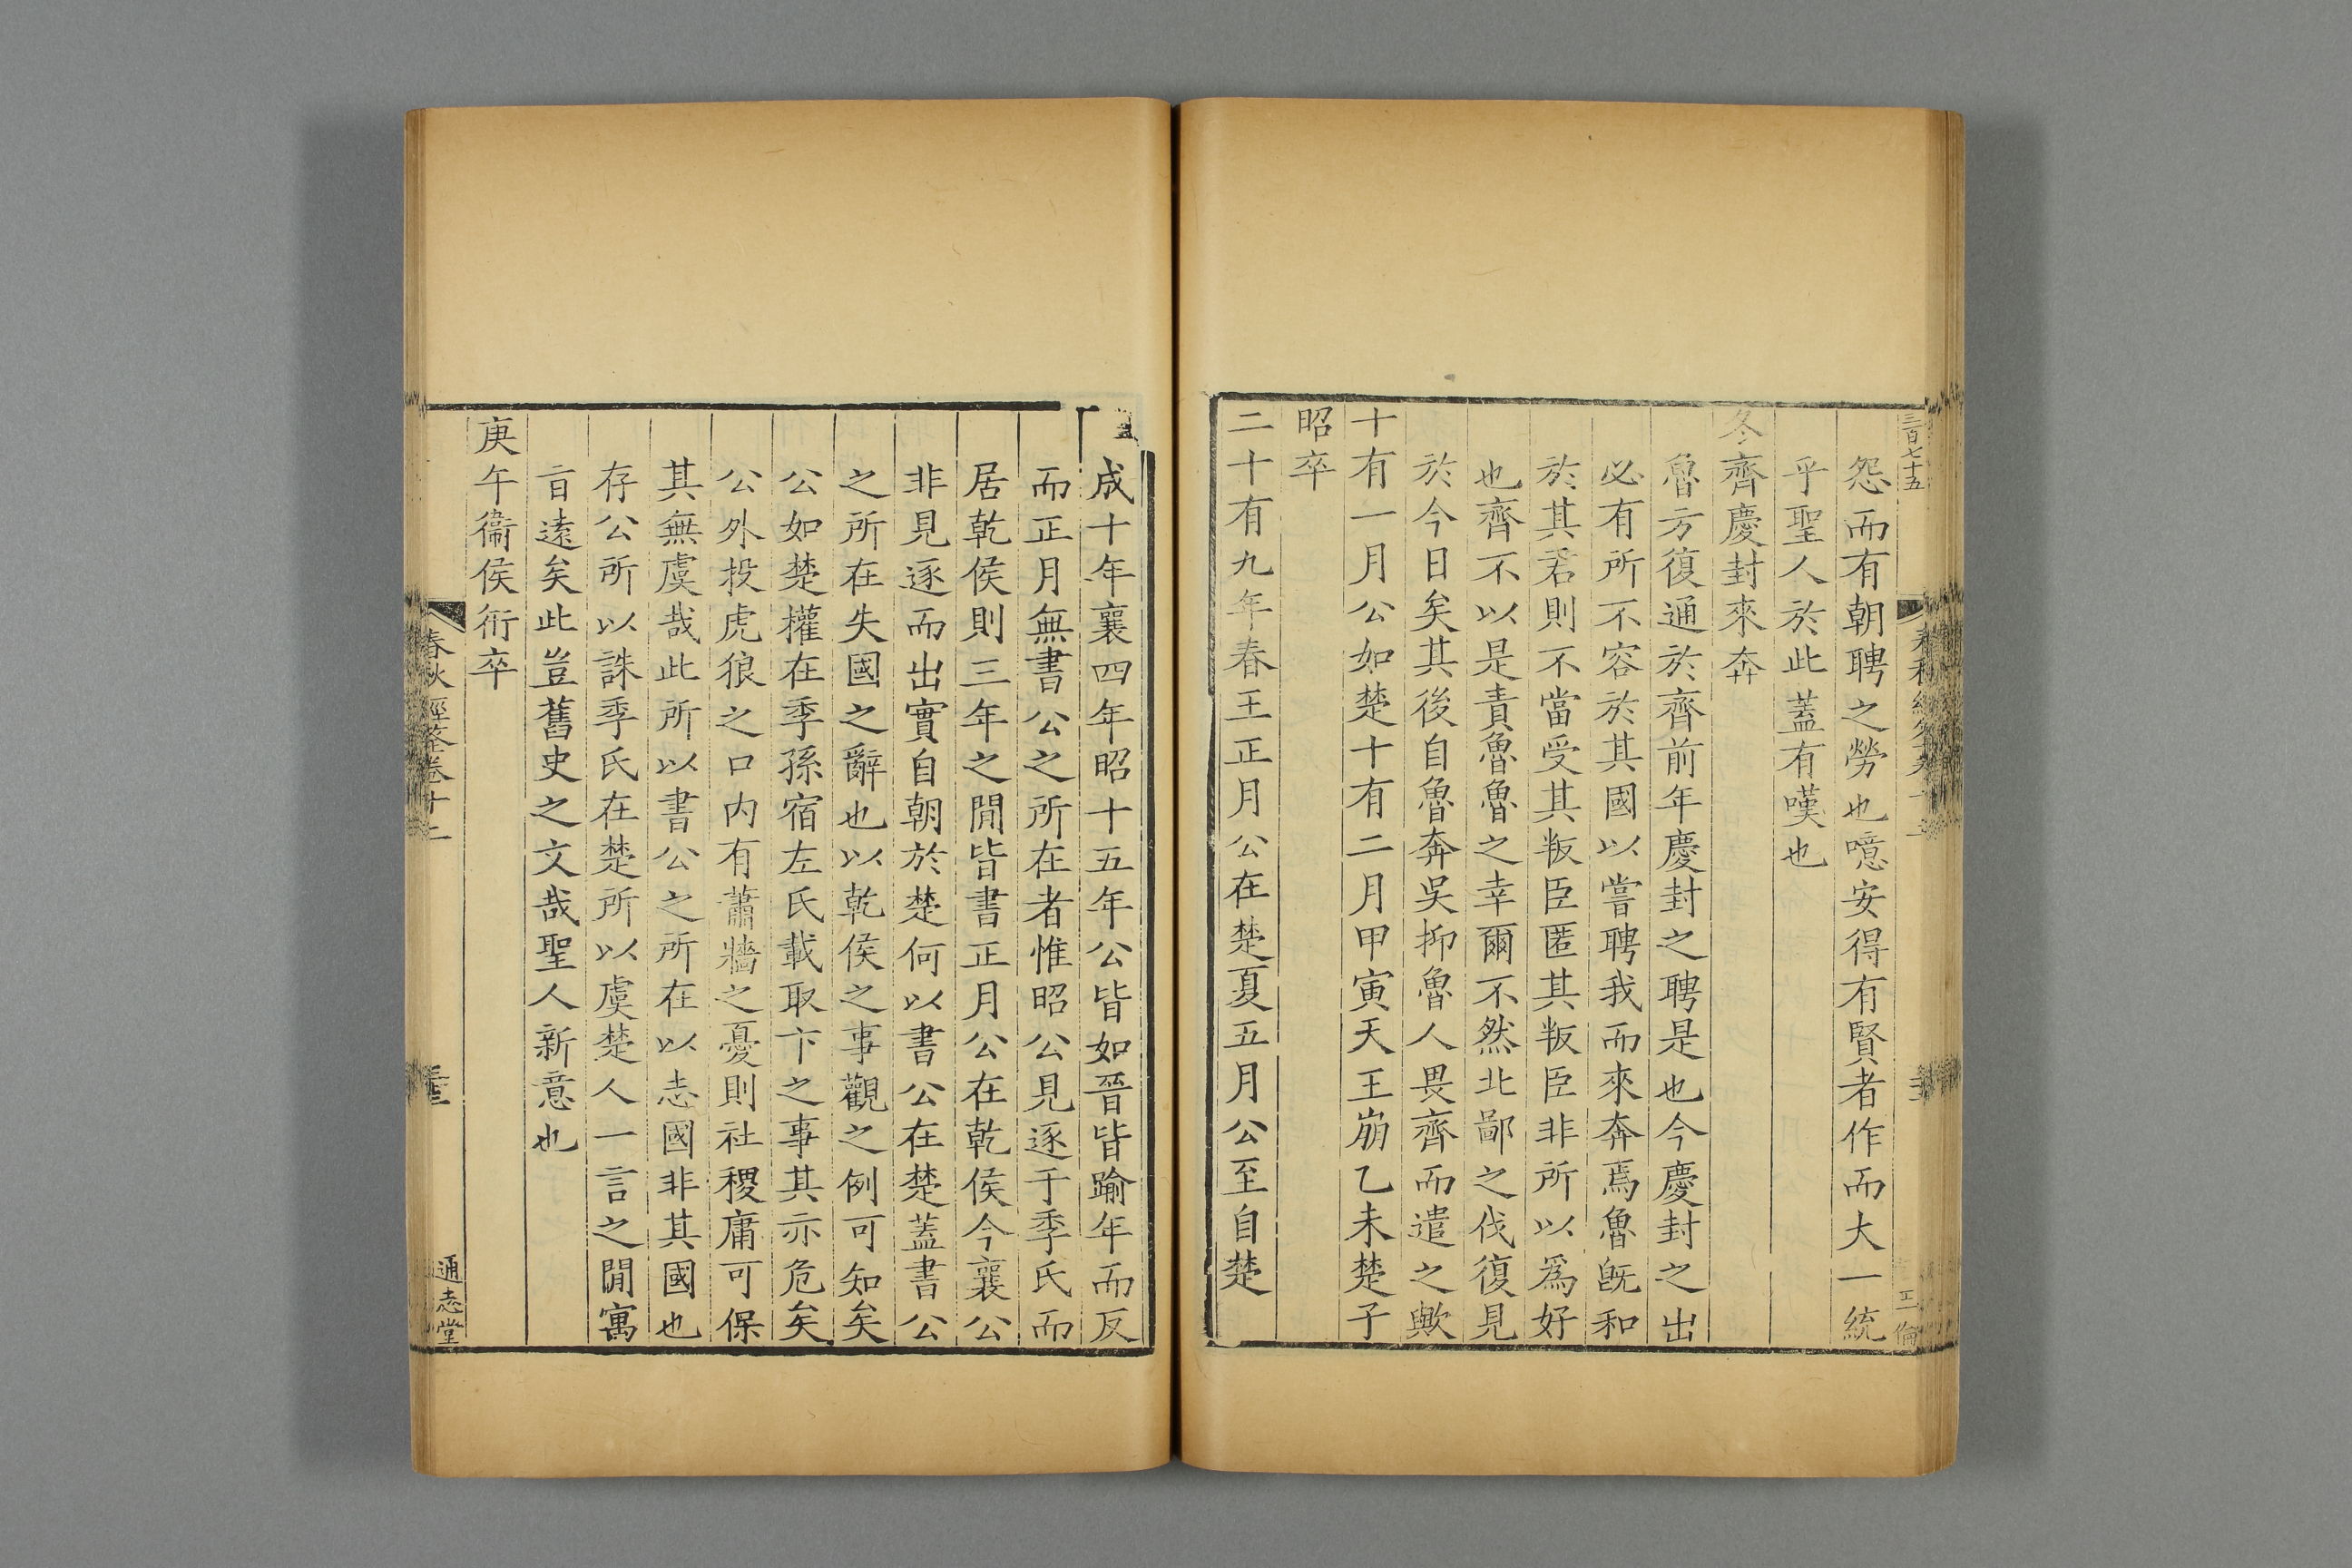 三百七十五
怨而有朝聘之勞也噫安得有賢者作而大一統
乎聖人於此蓋有嘆也
冬齊慶封來奔
魯方復通於齊前年慶封之聘是也今慶封之出
必有所不容於其國以嘗聘我而來奔焉魯旣和
於其君則不當受其叛臣匿其叛臣非所以爲好
也齊不以是責魯魯之幸爾不然北鄙之伐復見
於今日矣其後自魯奔吳抑魯人畏齊而遣之歟
十有一月公如楚十有二月甲寅天王崩乙未楚子
昭卒
二十有九年春王正月公在楚夏五月公至自楚
成十年襄四年昭十五年公皆如晉皆踰年而反
而正月無書公之所在者惟昭公見逐于季氏而
居乾侯則三年之閒皆書正月公在乾侯今襄公
非見逐而出實自朝於楚何以書公在楚蓋書公
之所在失國之辭也以乾侯之事觀之例可知矣
公如楚權在季孫宿左氏載取卞之事其亦危矣
公外投虎狼之口内有蕭牆之憂則社稷庸可保
其無虞哉此所以書公之所在以志國非其國也
存公所以誅季氏在楚所以虞楚人一言之閒寓
㫖遠矣此豈舊史之文哉聖人新意也
庚午衞侯衎卒
春秋經筌卷十二
通志堂